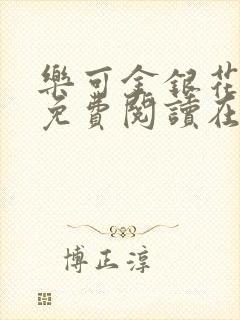 樂可金銀花
免費閱讀在
博正淳